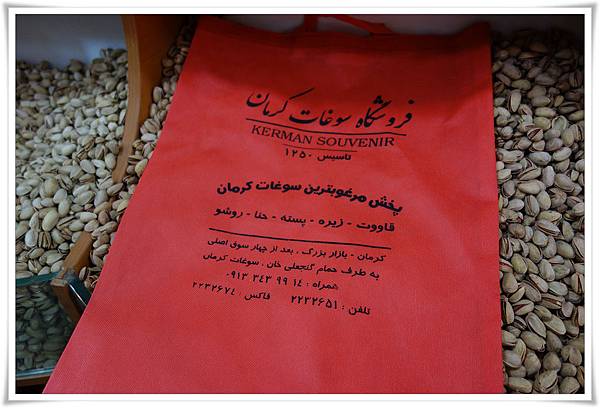 فروشگاه سوغات کرمان
KERMAN SOUVENIR
تاسیس ۱۲۵۰
پخش مرغوبترین سوغات کرمان
قاووت - زیره - پسته - حنا - روشو
کرمان - بازار بزرگ . بعد از چهار سوق اصلی
به طرف حمام گنجعلی خان . سوغات کرمان
همراه : ۱۴ ۹۹ ۳۴۳ ۰۹۱۳
تلفن : ۲۲۳۲۶۵۱ فاکس : ۲۲۳۲۶۷۴